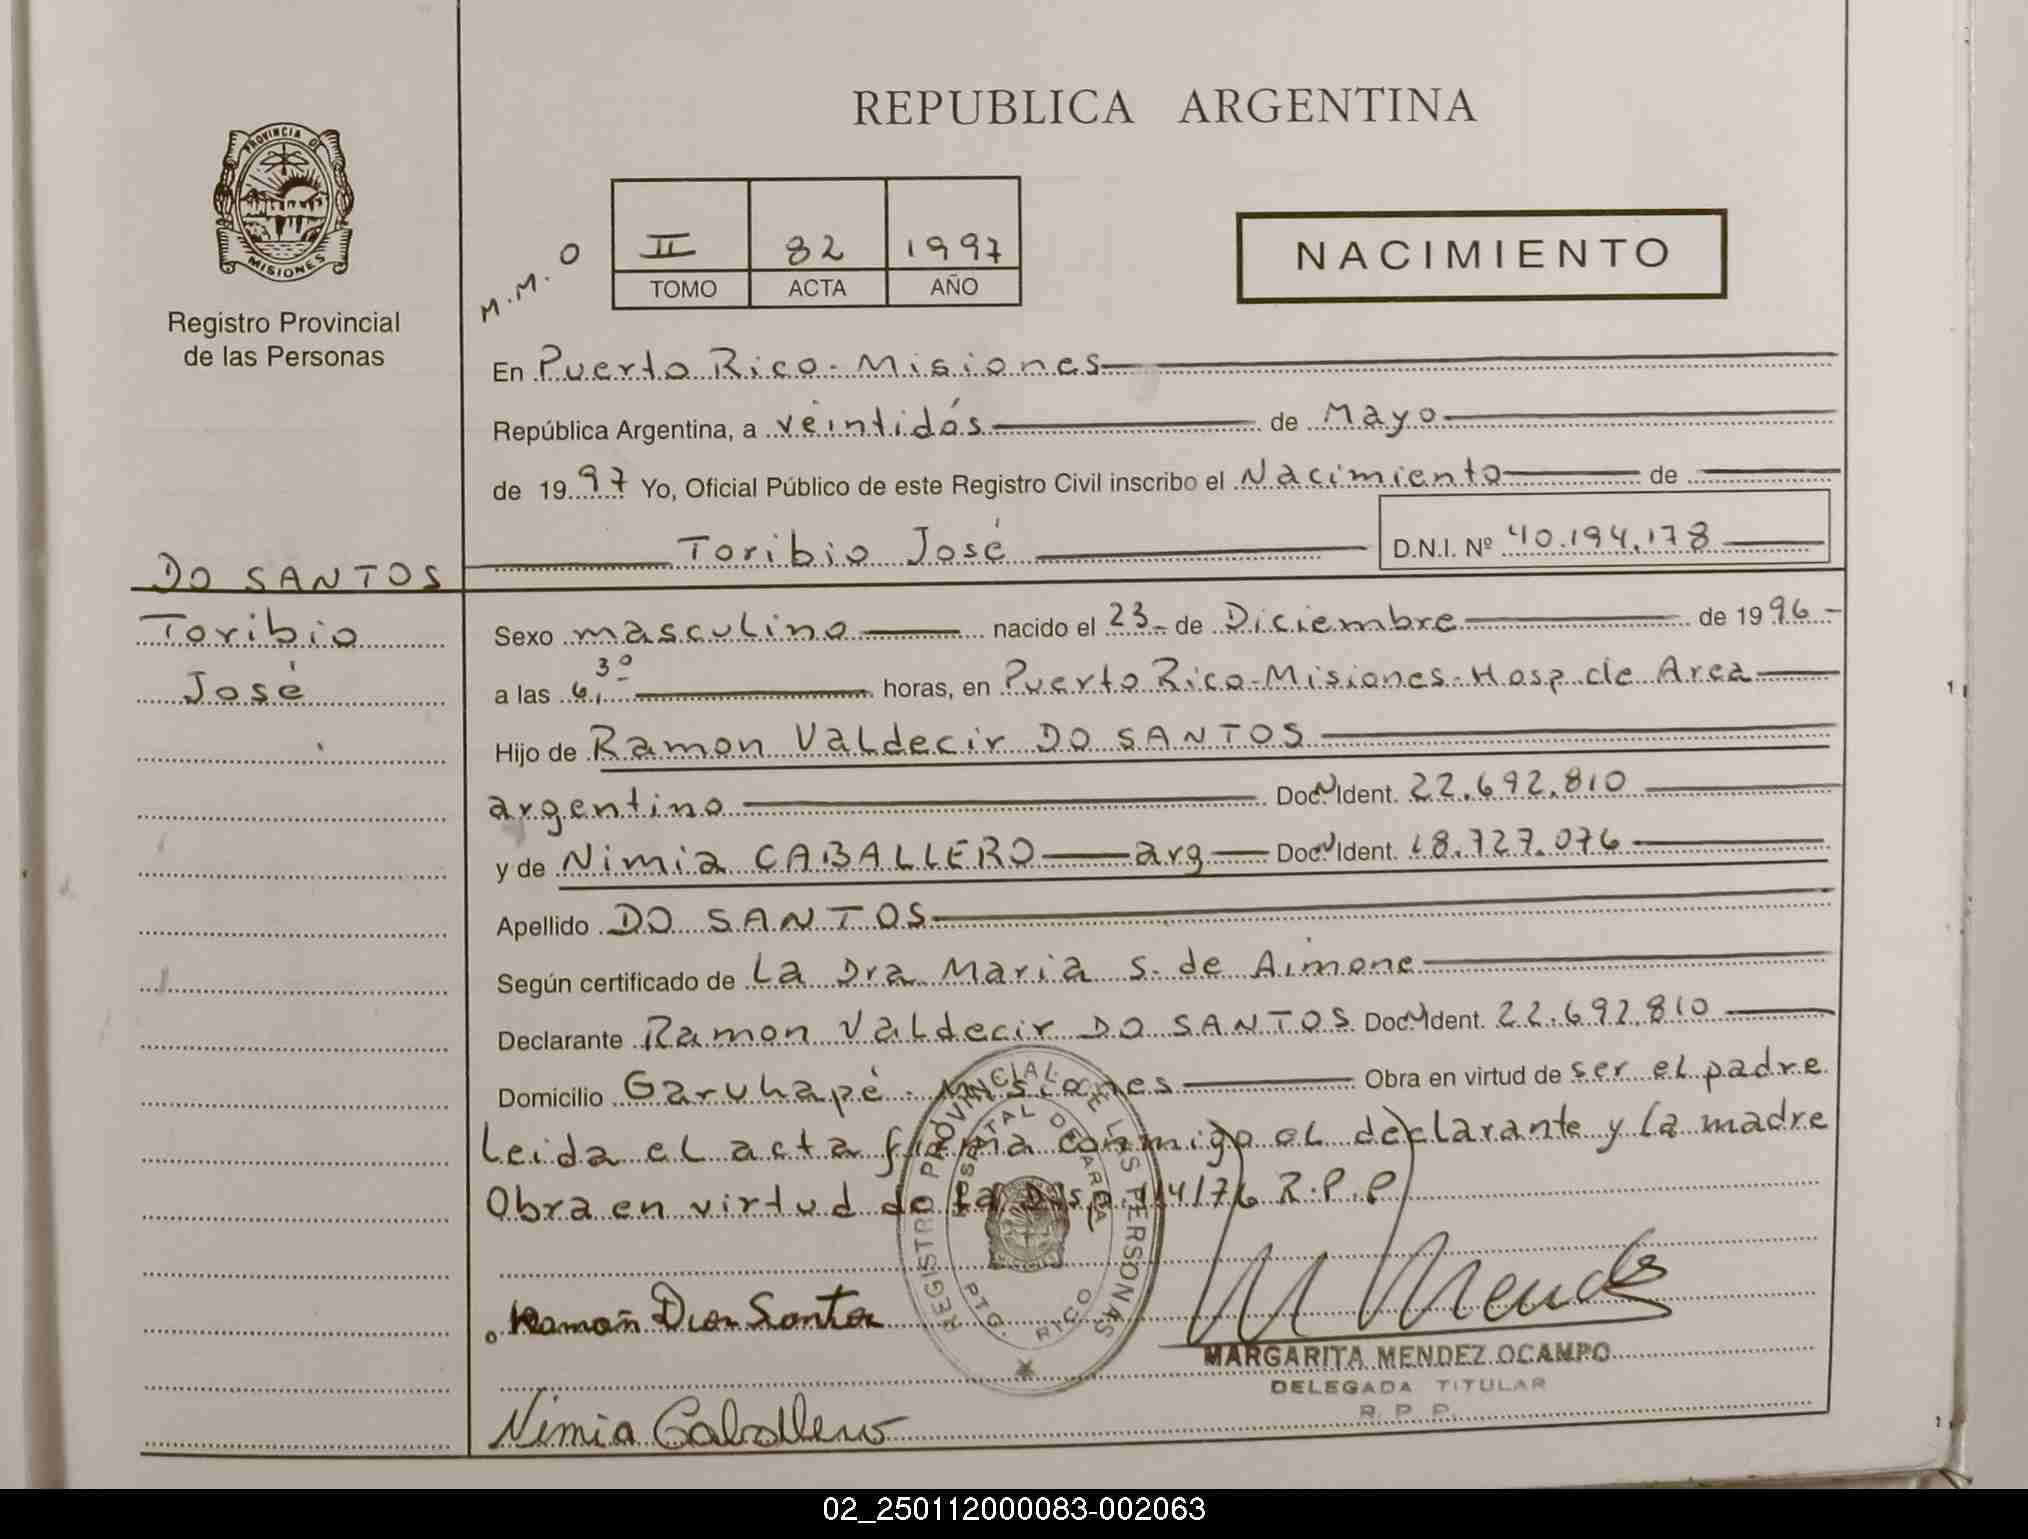 REPUBLICA ARGENTINA
PROVINCIA DE
MISIONES
Registro Provincial
de las Personas
M.M.O
II 82 1997
TOMO ACTA AÑO
NACIMIENTO
En Puerto Rico - Misiones
República Argentina, a veintidós de Mayo
de 1997 Yo, Oficial Público de este Registro Civil inscribo el Nacimiento de
Toribio José D.N.I. Nº 40.194.178
DO SANTOS
Toribio
José
Sexo masculino nacido el 23 de Diciembre de 1996
a las 6,30 horas, en Puerto Rico - Misiones - Hosp. de Area
Hijo de Ramon Valdecir DO SANTOS
argentino Doc. N Ident. 22.692.810
y de Nimia CABALLERO arg Doc. N Ident. 18.727.076
Apellido DO SANTOS
Según certificado de La Dra Maria S. de Aimone
Declarante Ramon Valdecir DO SANTOS Doc. N Ident. 22.692.810
Domicilio Garuhapé - Misiones Obra en virtud de ser el padre
Leida el acta firma conmigo el declarante y la madre
Obra en virtud de la Disp. 114/76 R.P.P
REGISTRO PROVINCIAL DE LAS PERSONAS
HOSPITAL DE AREA
PTO. RICO
Ramon Dos Santos
M Mendez
MARGARITA MENDEZ OCAMPO
DELEGADA TITULAR
R. P. P.
Nimia Caballero
02_250112000083-002063